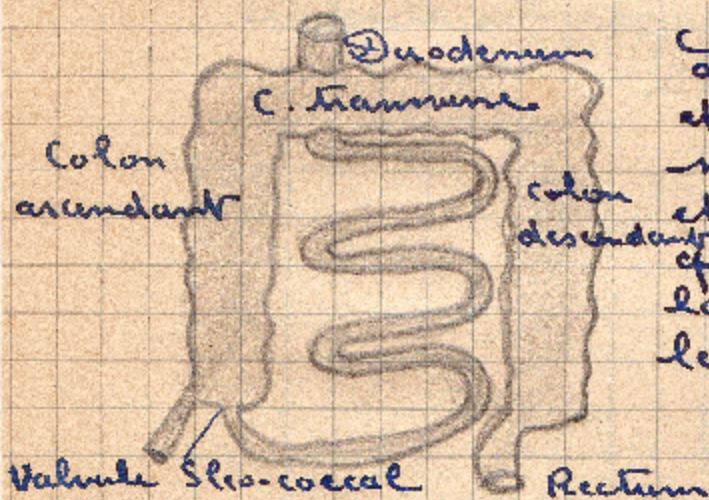 Duodenum
C. transverse
Colon
ascendant
colon
descendant
Valvule Iléo-coecal
Rectum